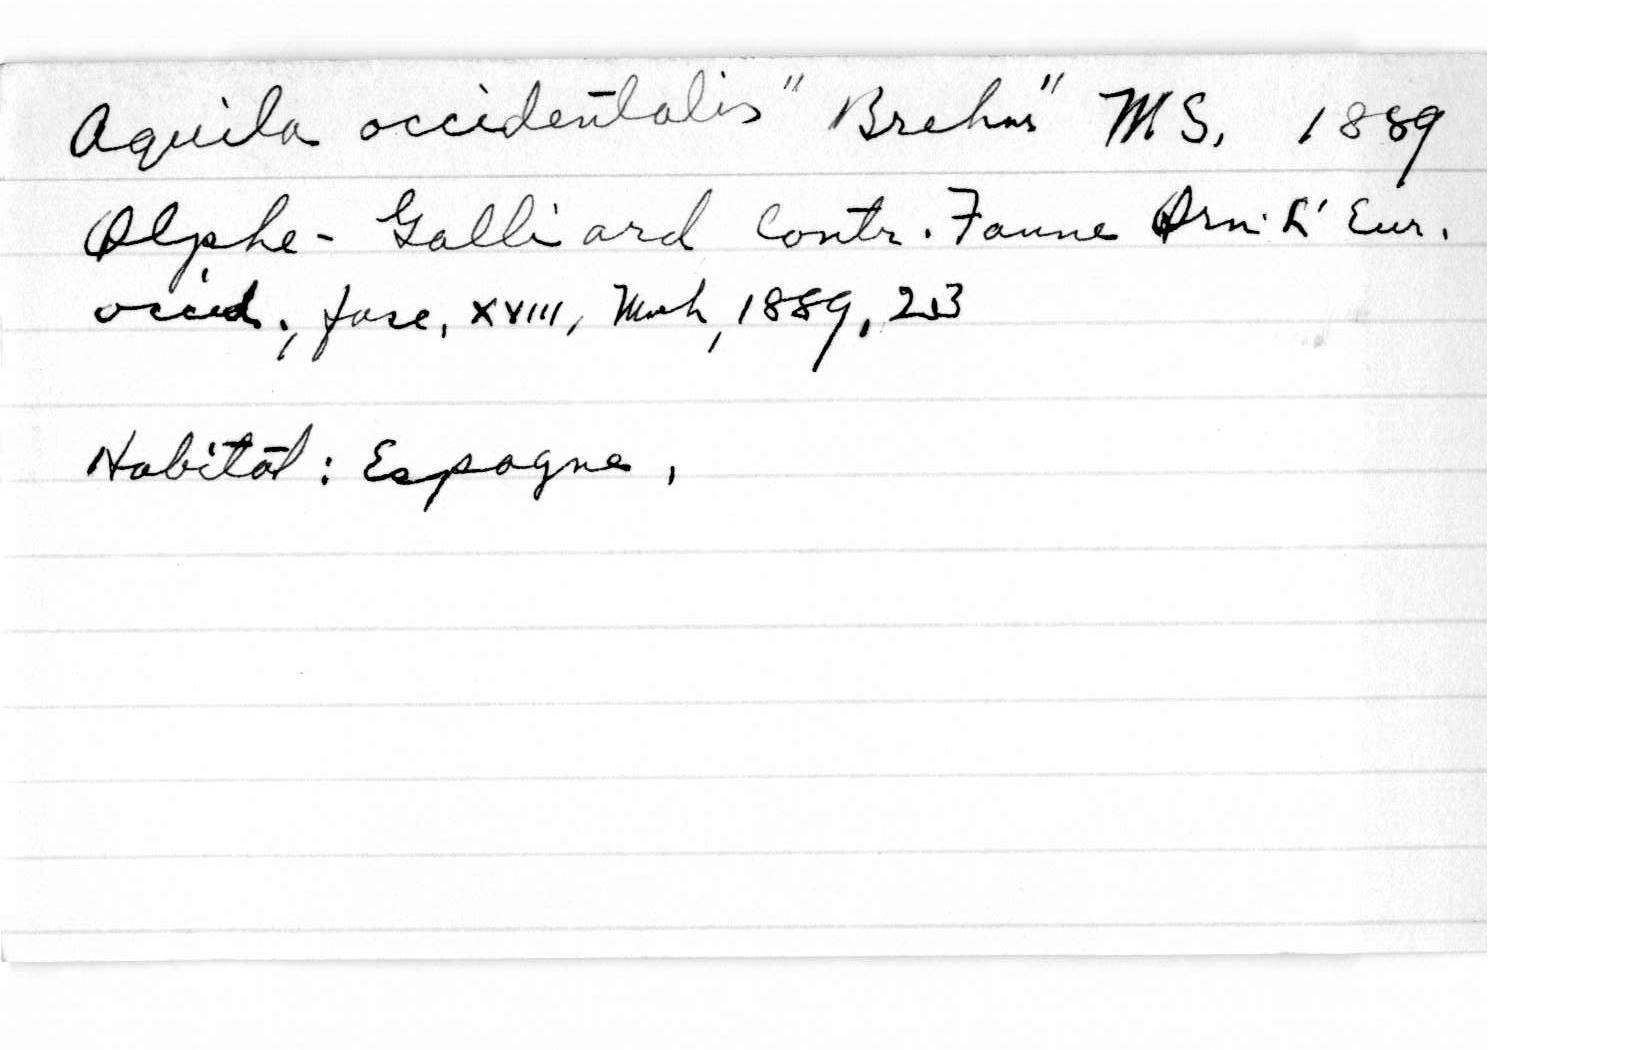 Aquila occidentalis "Brehm" MS, 1889
Olphe-Galliard Contr. Faune Orn. L' Eur.
occid., fasc, XVIII, March, 1889, 23
Habitat: Espagne,